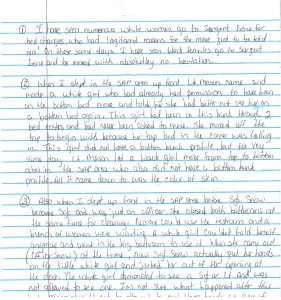 ① I have seen numerous white women go to Sargent Bene for
bed changes, who had legitimate reasons for the move, just to be told
"no". On those same days I have seen black females go to Sargent
Bene and be moved with absolutely no hesitation.
② When I slept in the SAP area up front Lt. Mason came and
made a white girl who had already had permission to have been
on the bottom bed move and told her she had better not see her on
a bottom bed again. This girl had been on this bunk through 2
bed and had never been asked to move. She moved off the
top to begin with because her top bed in the corner was falling
in. This girl did not have a bottom bunk profile, but the very
same day, Lt. Mason let a black girl move from top to bottom
also in the SAP area who also did not have a bottom bunk
profile. All it came down to was the color of skin.
③ Also when I slept up front in the SAP area before Sgt. Snow
became Sgt and was just an officer she closed both bathrooms at
the same time for cleaning. No one could use the restroom and a
bunch of women were waiting. A white girl couldn't hold herself
anymore and went in the big bathroom to use it. When she came out
(Officer Snow) at the time, now Sgt. Snow actually put her hands
on the little white girl and her out of the opening of
the door. The white girl demanded to see a Sgt or Lt and was
not allowed to see one. I'm not sure what happened after this